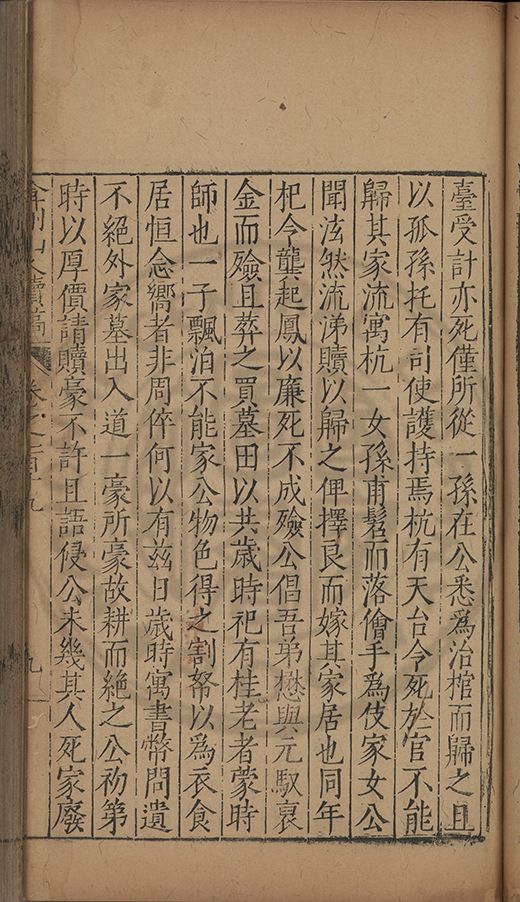 臺受計亦死僅所從一孫在公悉爲治棺而歸之且
以孤孫托有司使護持焉杭有天台令死於官不能
歸其家流寓杭一女孫甫髫而落儈手爲伎家女公
聞泫然流涕贖以歸之俾擇良而嫁其家居也同年
杞今龔起鳳以廉死不成殮公倡吾弟懋與元馭裒
金而殮且葬之買墓田以共歲時祀有桂老者蒙時
師也一子飄泊不能家公物色得之割帑以爲衣食
居恒念嚮者非周倅何以有兹日歲時寓書幣問遺
不絕外家墓出入道一豪所豪故耕而絕之公初第
時以厚價請贖豪不許且語侵公未幾其人死家廢
弇州山人續稿
卷之一百十九
九